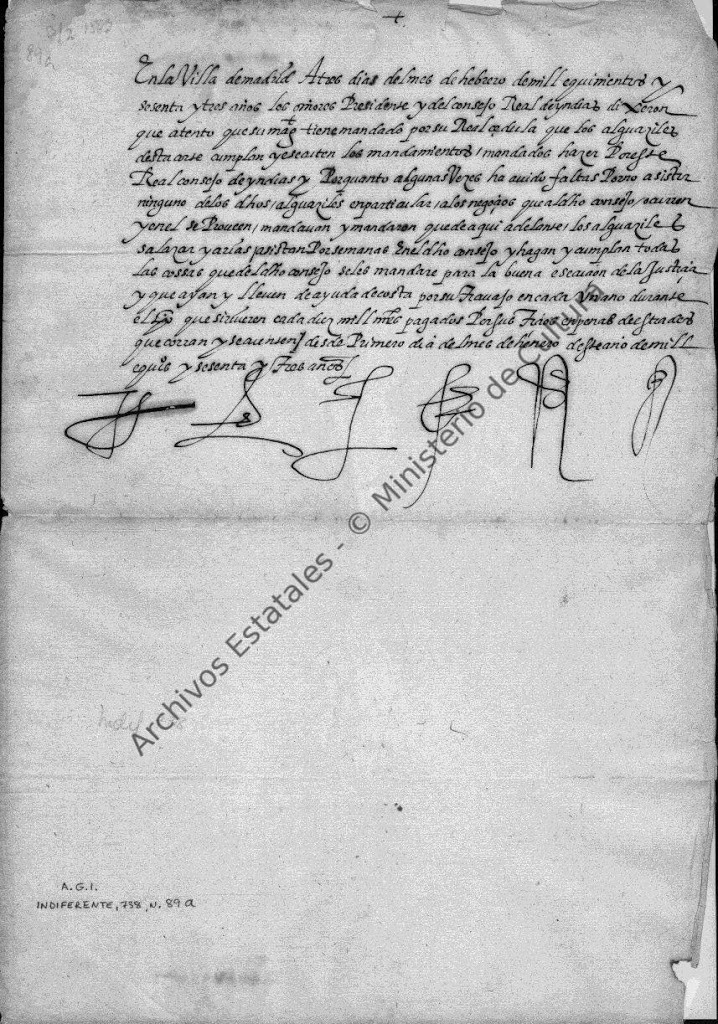 +
En la Villa de madrid A tres dias del mes de hebrero de mill e quinientos y
sesenta y tres años los señores Presidente y del consejo Real de yndias dixeron
que atento que su magt tiene mandado por su Real cedula que los alguaziles
desta corte cumplan y executen los mandamientos / mandados hazer Por este
Real consejo de yndias y Por quanto algunas Vezes ha avido faltas Por no asistir
ninguno de los dhos / alguaziles en particular / a los negoçios que al dho consejo / ocurren
y en el se Proveen / mandavan y mandaron que de aqui adelante / los alguaziles
salazar y arias / asistan Por semanas En el dho consejo y hagan y cumplan todas
las cossas que del dho consejo se les mandare para la buena execucion de la Justiçia
y que ayan y lleven de ayuda de costa por su Travajo en cada Un año durante
el tpo que sirvieren cada diez mill mrs pagados Por sus Terçios en penas de estrados
que corran y se quenten / desde Primero dia del mes de henero deste año de mill
e quis y sesenta y Tres años /
Archivos Estatales - © Ministerio de Cultura
A.G.I.
INDIFERENTE, 738, N. 89a